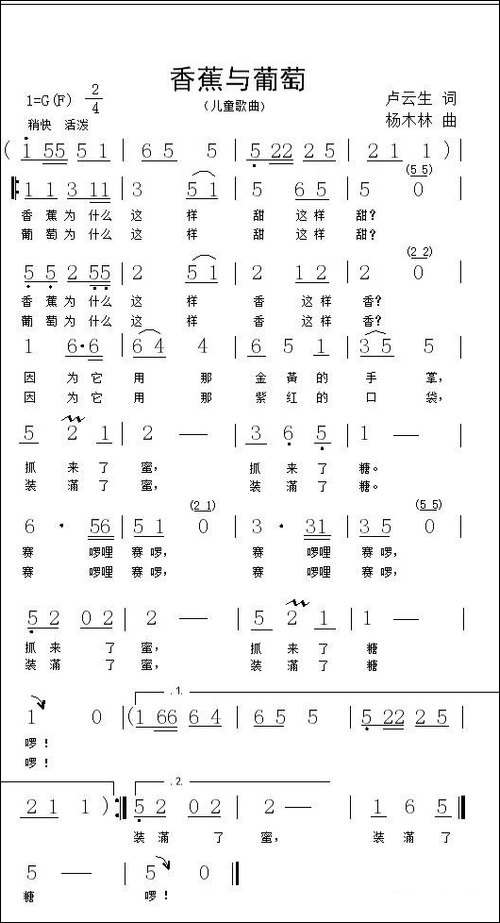 香蕉与葡萄
（儿童歌曲）
1=G(F) 2/4
卢云生 词
稍快 活泼
杨木林 曲
( i 55 5 1 | 6 5 5 | 5 22 2 5 | 2 1 1 ) |
(5 5)
1 1 3 11 | 3 5 1 | 5 6 5 | 5 0 |
香蕉为什么这 样 甜这样 甜？
葡萄为什么这 样 甜这样 甜？
(2 2)
5 5 2 55 | 2 5 1 | 2 1 2 | 2 0 |
香蕉为什么这 样 香这样 香？
葡萄为什么这 样 香这样 香？
1 6·6 | 6 4 4 | 6 5 1 | 3 5 5 |
因 为它 用 那 金黄的 手 掌，
因 为它 用 那 紫红的 口 袋，
5 2 1 | 2 — | 3 6 5 | 1 — |
抓来了 蜜， 抓来了 糖。
装满了 蜜， 装满了 糖。
(2 1) (5 5)
6 · 56 | 5 1 0 | 3 · 31 | 3 5 0 |
赛 啰哩 赛啰， 赛 啰哩 赛啰，
赛 啰哩 赛啰， 赛 啰哩 赛啰，
5 2 0 2 | 2 — | 5 2 1 | 1 — |
抓来 了 蜜， 抓来了 糖
装满 了 蜜， 装满了 糖
.1.
1 0 | (1 66 6 4 | 6 5 5 | 5 22 2 5 |
啰！
啰！
.2.
2 1 1 ) :‖ 5 2 0 2 | 2 — | 1 6 5 ‖
装满 了 蜜， 装满了
5 — | 5 0 ‖
糖 啰！